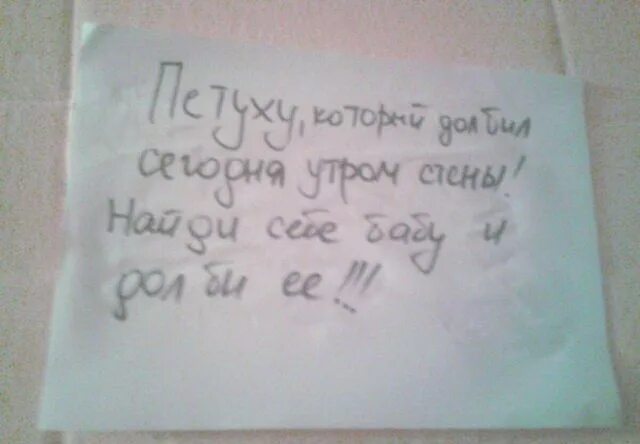 Петуху, который долбил
сегодня утром стены!
Найди себе бабу и
долби ее!!!